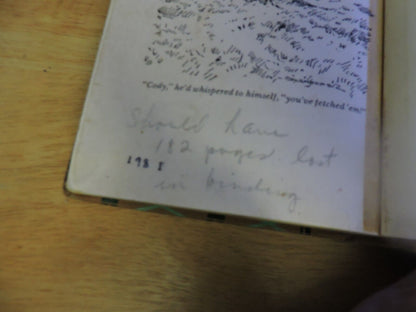 "Cody," he'd whispered to himself, "you've fetched 'em!"
Should have
182 pages lost
1981
in binding